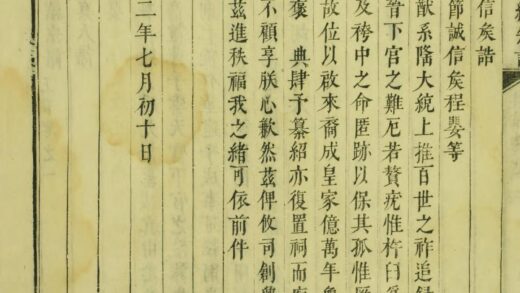 信矣誥
節誠信矣程嬰等
猷系隆大統上推百世之祚追録
晉下官之難厄若贅疣惟杵臼
及袴中之命匿跡以保其孤惟厥
故位以啟來裔成皇家億萬年
褒　典肆予纂紹亦復置祠而
不顧享朕心歉然茲俾攸司創
茲進秩福我之緒可依前件
二年七月初十日